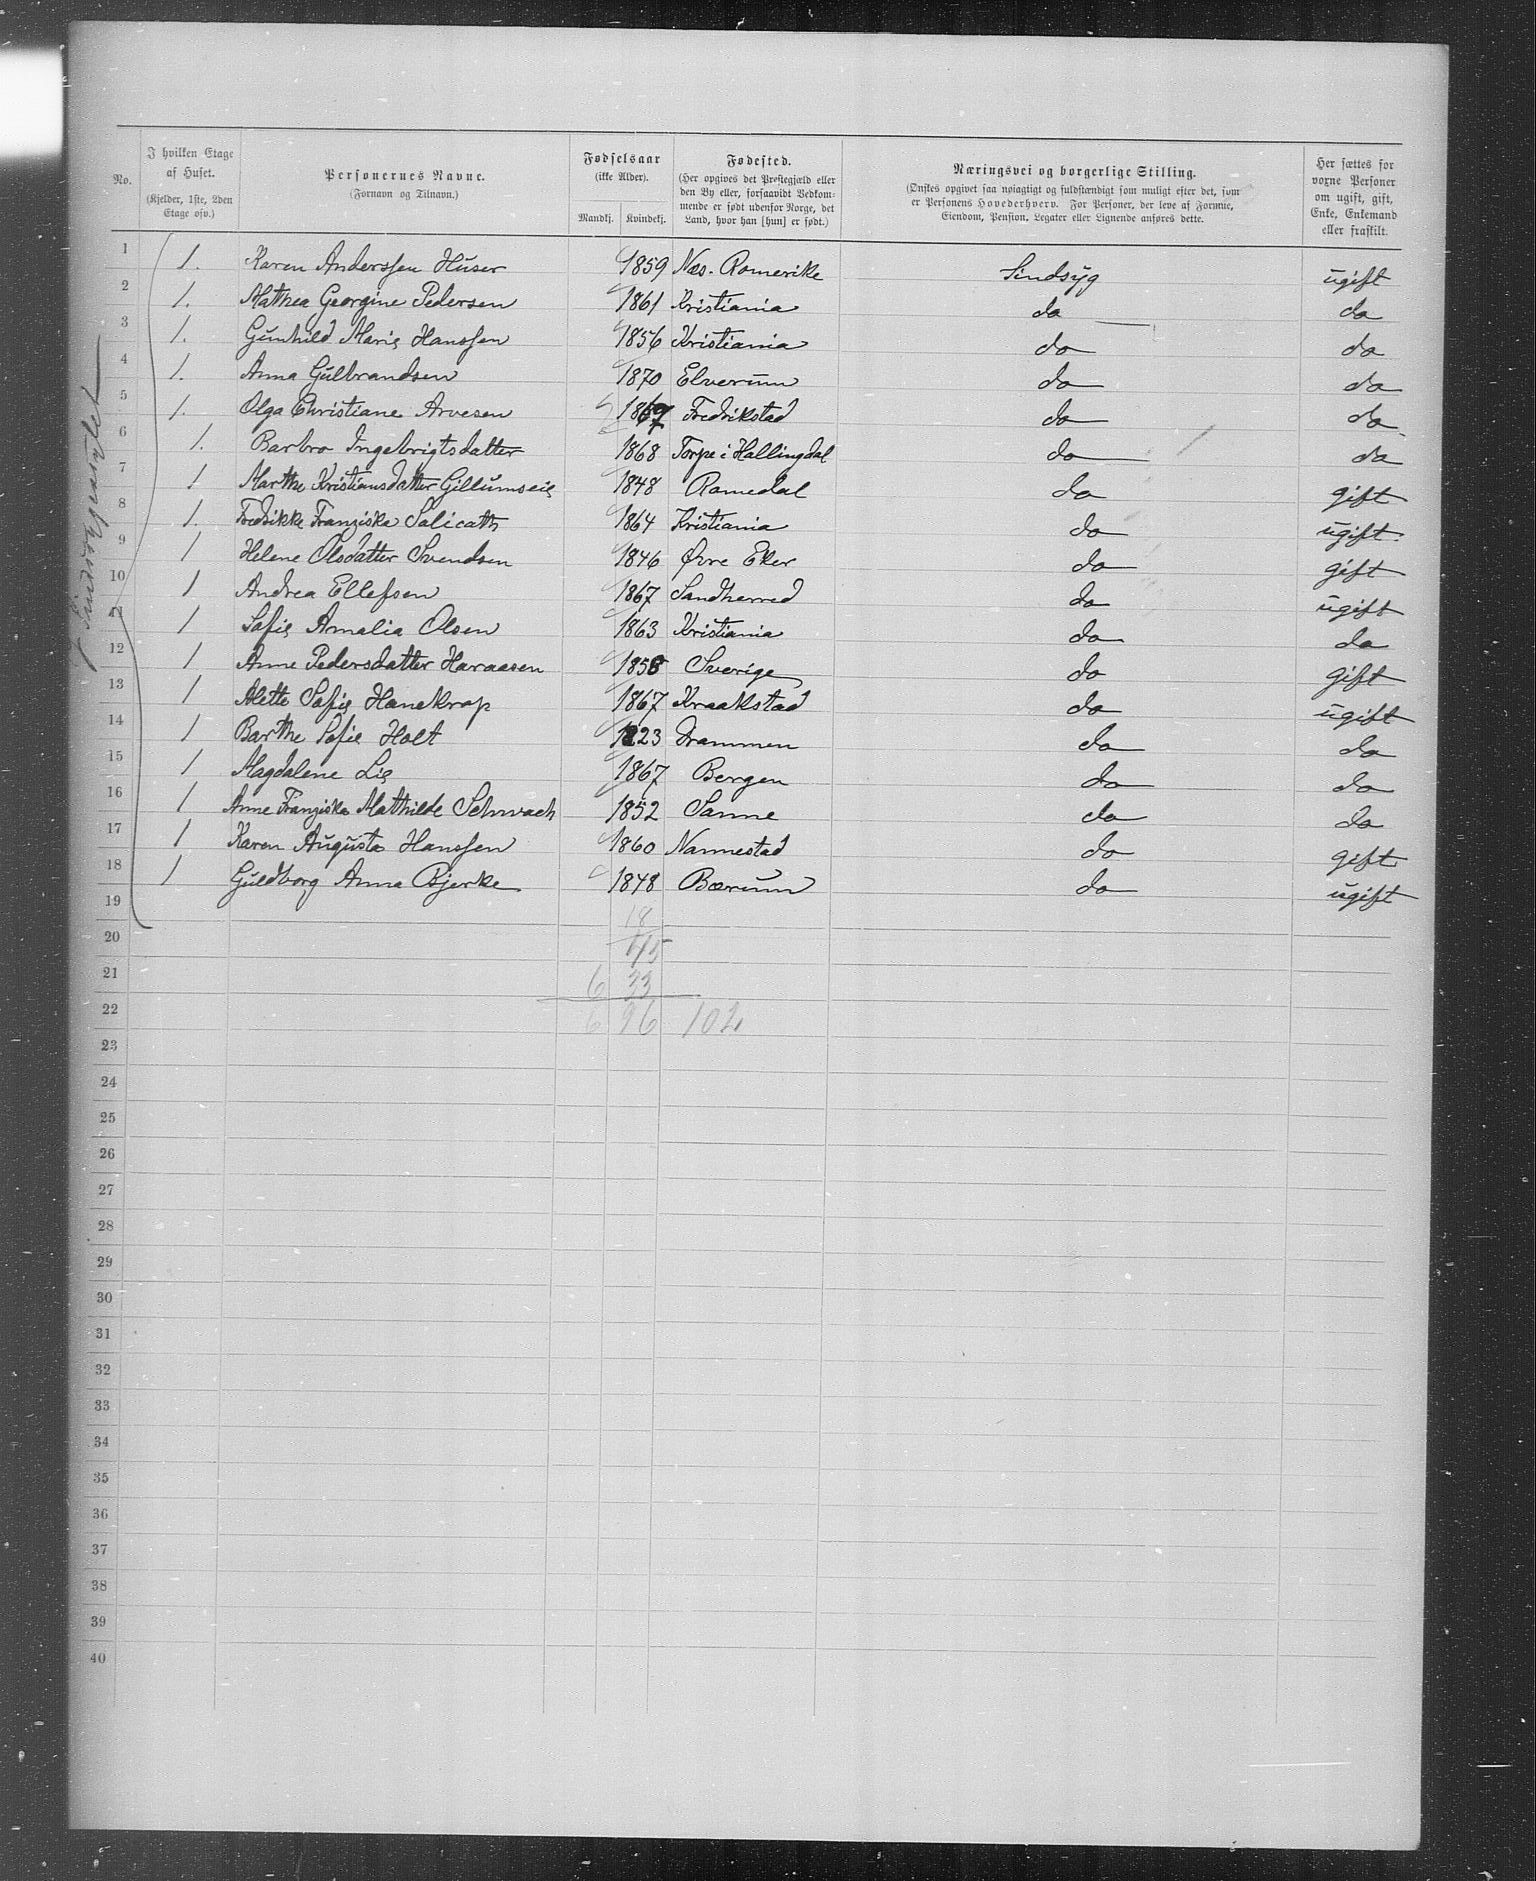 No.
I hvilken Etage af Huset. (Kjelder, 1ste, 2den Etage osv.)
Personernes Navne. (Fornavn og Tilnavn.)
Fødselsaar (ikke Alder). Mandkj. Kvindekj.
Fødested. (Her opgives det Prestegjæld eller den By eller, forsaavidt Vedkommende er født udenfor Norge, det Land, hvor han [hun] er født.)
Næringsvei og borgerlige Stilling. (Ønskes opgivet saa nøiagtigt og fuldstændigt som muligt efter det, som er Personens Hovederhverv. For Personer, der leve af Formue, Eiendom, Pension, Legater eller Lignende anføres dette.)
Her sættes for voxne Personer om ugift, gift, Enke, Enkemand eller fraskilt.
1 1. Karen Anderssen Huser 1859 Næs. Romerike Sindsyg ugift
2 1. Mathea Georgine Pedersen 1861 Kristiania do do
3 1. Gunhild Marie Hanssen 1856 Kristiania do do
4 1. Anna Gulbrandsen 1870 Elverum do do
5 1. Olga Christiane Arvesen 1867 Fredrikstad do do
6 1. Barbro Ingebrigtsdatter 1868 Torpe i Hallingdal do do
7 1 Marthe Kristiansdatter Gillumseie 1848 Romedal do gift
8 1. Fredrikke Franziska Salicath 1864 Kristiania do ugift
9 1 Helene Olsdatter Svendsen 1846 Øvre Eker do gift
10 1 Andrea Ellefsen 1867 Sandherred do ugift
11 1 Sofie Amalia Olsen 1863 Kristiania do do
12 1 Anne Pedersdatter Haraasen 1858 Sverige do gift
13 1 Mette Sofie Hanekrop 1867 Kraakstad do ugift
14 1 Barthe Sofie Holt 1823 Drammen do do
15 1 Magdalene Lie 1867 Bergen do do
16 1 Anne Franziska Mathilde Schwach 1852 Sanne do do
17 1 Karen Augusta Hanssen 1860 Nannestad do gift
18 1 Guldborg Anna Bjerke 1848 Bærum do ugift
19 18
20 45
21 6 33
22 6 96 102
23
24
25
26
27
28
29
30
31
32
33
34
35
36
37
38
39
40